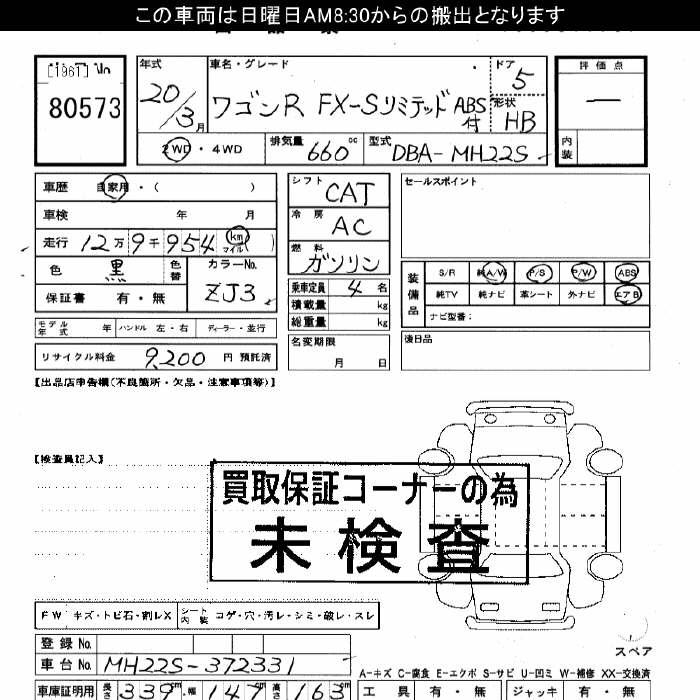 この車両は日曜日AM8:30からの搬出となります
[1961] No
80573
年式
20/3月
車名・グレード
ワゴンR FX-Sリミテッド ABS付
ドア
5
形状
HB
評価点
—
内装
2WD ・ 4WD
排気量
660cc
型式
DBA-MH22S
車歴 自家用・( )
車検 年 月
走行 12万9千954 (km マイル)
色 黒 色替
カラーNo.
ZJ3
保証書 有・無
モデル年式 年 ハンドル 左・右 ディーラー・並行
リサイクル料金 9,200 円 預託済
シフト
CAT
冷房
AC
燃料
ガソリン
乗車定員 4 名
積載量 kg
総重量 kg
名変期限
月 日
セールスポイント
装備品
S/R 純A/W P/S P/W ABS
純TV 純ナビ 革シート 外ナビ エアB
ナビ型番:
後日品
【出品店申告欄(不良箇所・欠品・注意事項等)】
【検査員記入】
買取保証コーナーの為
未検査
FW キズ・トビ石・割レX
シート内装 コゲ・穴・汚レ・シミ・破レ・スレ
スペア
登録No.
車台No. MH22S-372331
A-キズ C-腐食 E-エクボ S-サビ U-凹ミ W-補修 XX-交換済
車庫証明用 長さ 339cm・幅 147cm 高さ 163cm
工具 有・無 ジャッキ 有・無